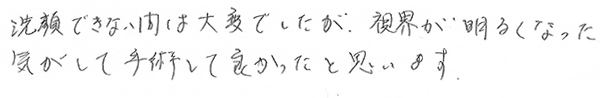 洗顔できない間は大変でしたが、視界が明るくなった
気がして手術して良かったと思います.